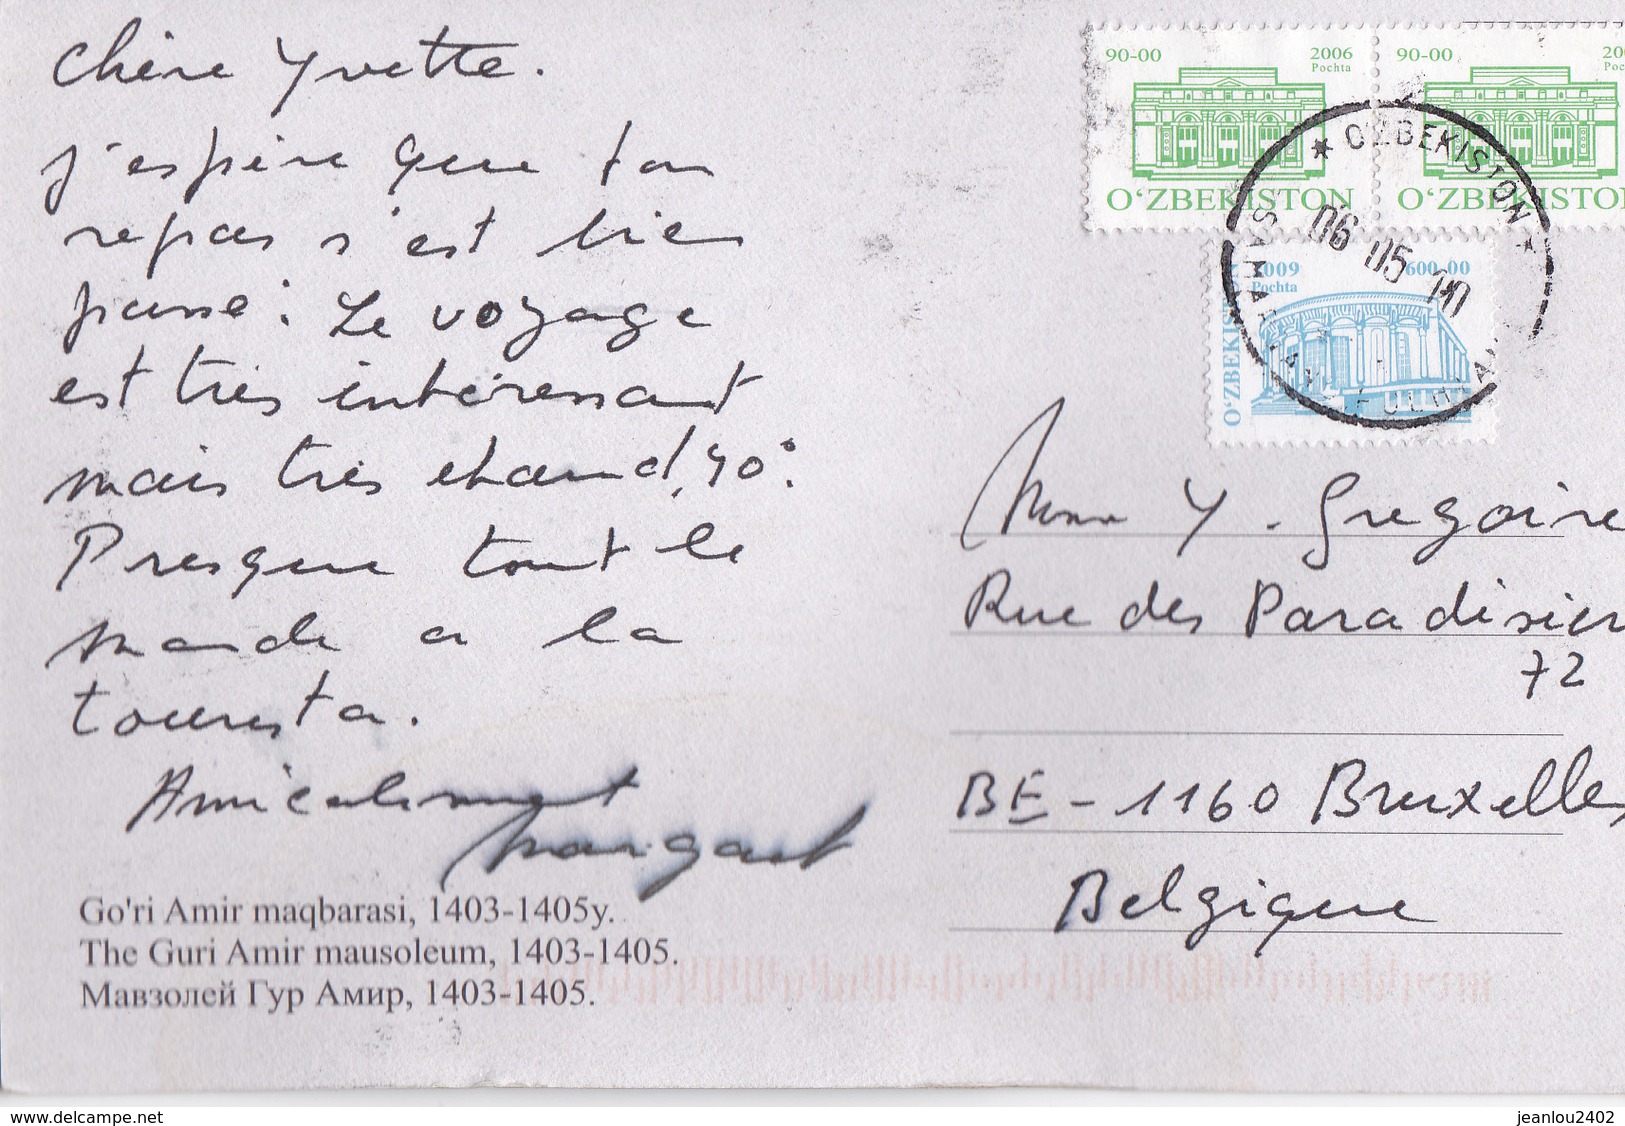 Chère Yvette.
j'espère que ton
repas s'est bien
passé. Le voyage
est très intéressant
mais très chaud, 40°.
Presque tout le
monde a la
tourista.
Amicalement
Go'ri Amir maqbarasi, 1403-1405y.
The Guri Amir mausoleum, 1403-1405.
Мавзолей Гур Амир, 1403-1405.
90-00 2006
Pochta
O'ZBEKISTON
90-00
O'ZBEKISTON
O'ZBEKISTON
06 05
2009 600-00
Pochta
O'ZBEKISTON
Mme Y. Gregoire
Rue des Paradisier
72
BE-1160 Bruxelles
Belgique
www.delcampe.net
jeanlou2402